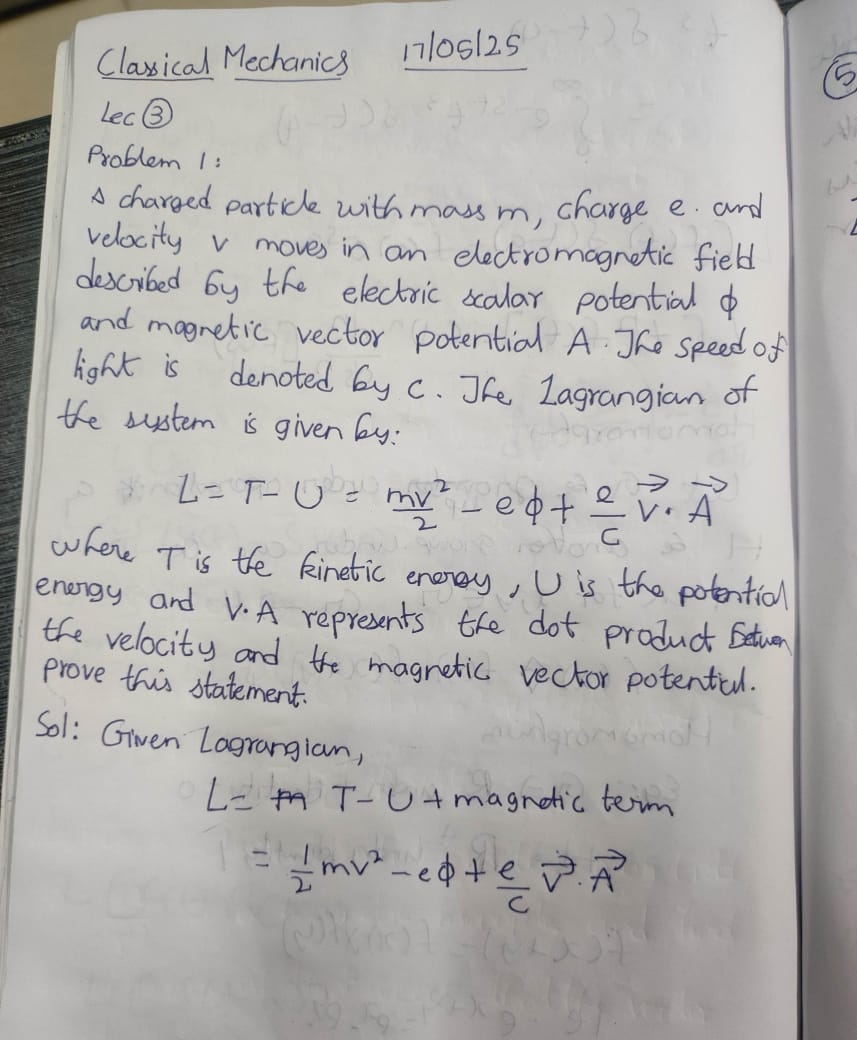 Classical Mechanics 17/05/25
Lec ③
Problem 1:
A charged particle with mass m, charge e. and
velocity v moves in an electromagnetic field
described by the electric scalar potential ϕ
and magnetic vector potential A. The speed of
light is denoted by c. The Lagrangian of
the system is given by:
L = T - U = mv²/2 - eϕ + e/c v⃗ · A⃗
where T is the kinetic energy, U is the potential
energy and V·A represents the dot product between
the velocity and the magnetic vector potential.
prove this statement.
Sol: Given Lagrangian,
L = T - U + magnetic term
= 1/2 mv² - eϕ + e/c v⃗ · A⃗
⑤